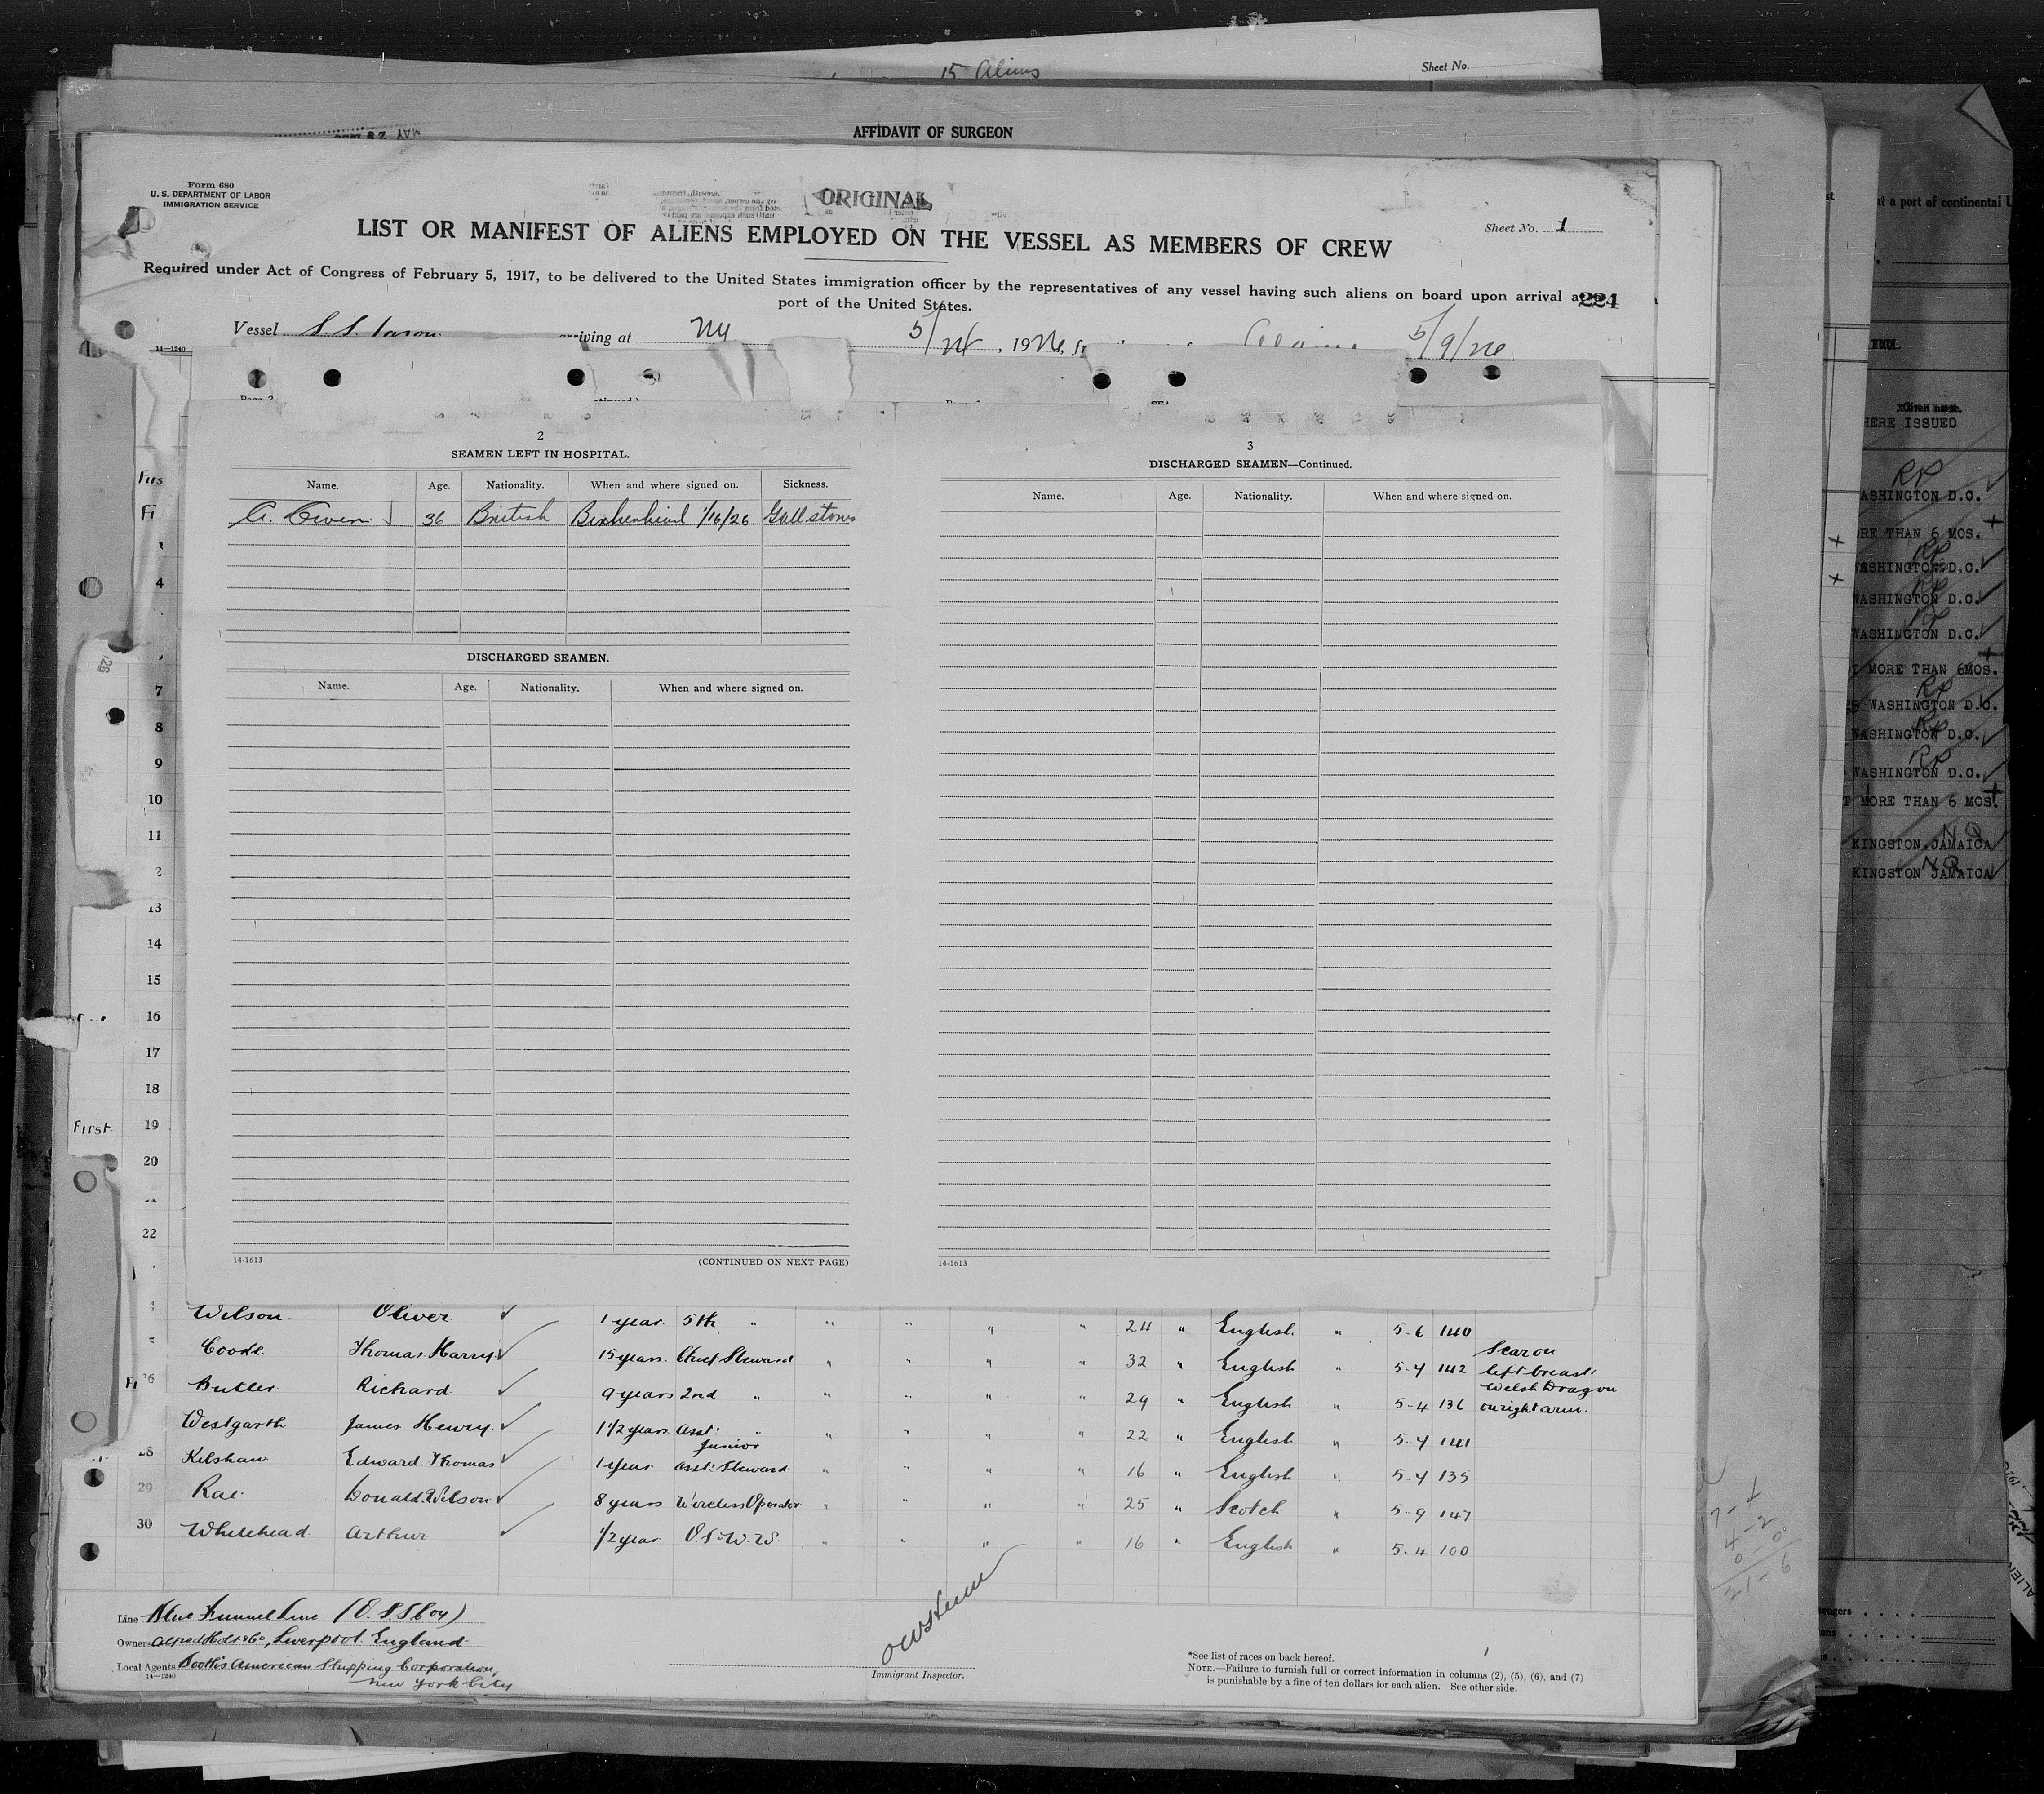 15 Aliens
Sheet No.
AFFIDAVIT OF SURGEON
Form 680
U. S. DEPARTMENT OF LABOR
IMMIGRATION SERVICE
ORIGINAL
Sheet No. 1
LIST OR MANIFEST OF ALIENS EMPLOYED ON THE VESSEL AS MEMBERS OF CREW
Required under Act of Congress of February 5, 1917, to be delivered to the United States immigration officer by the representatives of any vessel having such aliens on board upon arrival a
221
port of the United States.
Vessel S.S. arriving at NY 5/24, 1926, 5/9/26
14-1240
2
SEAMEN LEFT IN HOSPITAL.
Name. Age. Nationality. When and where signed on. Sickness.
36 British Birkenhead 1/16/26 Gallstones
DISCHARGED SEAMEN.
Name. Age. Nationality. When and where signed on.
14-1613 (CONTINUED ON NEXT PAGE)
3
DISCHARGED SEAMEN—Continued.
Name. Age. Nationality. When and where signed on.
14-1613
4
7
8
9
10
11
13
14
15
16
17
18
First 19
20
22
Wilson Oliver 1 year 5th " " " " " 24 " English " 5-6 140
Coode Thomas Harry 15 years Chief Steward " " " " 32 " English " 5-4 142 Scar on left breast
Butler Richard 9 years 2nd " " " " " 29 " English " 5-4 136 Welsh Dragon on right arm.
Westgarth James Henry 1 1/2 years Asst. " " " " " 22 " English " 5-4 141
28 Kilshaw Edward Thomas 1 year Junior Asst. Steward " " " " 16 " English " 5-4 135
29 Rae Donald Wilson 8 years Wireless Operator " " " " 25 " Scotch " 5-9 147
30 Whitehead Arthur 1/2 year " " " " 16 " English " 5-4 100
Line Blue Funnel Line
Owners Alfred Holt & Co, Liverpool England
Local Agents Booth's American Shipping Corporation,
14-1240
New York City
Immigrant Inspector.
*See list of races on back hereof.
NOTE.—Failure to furnish full or correct information in columns (2), (5), (6), and (7)
is punishable by a fine of ten dollars for each alien. See other side.
at a port of continental U
HERE ISSUED
RP
WASHINGTON D.C.
ORE THAN 6 MOS.
RP
WASHINGTON D.C.
RP
WASHINGTON D.C.
RP
WASHINGTON D.C.
OT MORE THAN 6MOS.
RP
WASHINGTON D.C.
RP
WASHINGTON D.C.
RP
WASHINGTON D.C.
T MORE THAN 6 MOS.
NQ
KINGSTON JAMAICA
NQ
KINGSTON JAMAICA
17-4
4-2
0-0
21-6
ALIEN